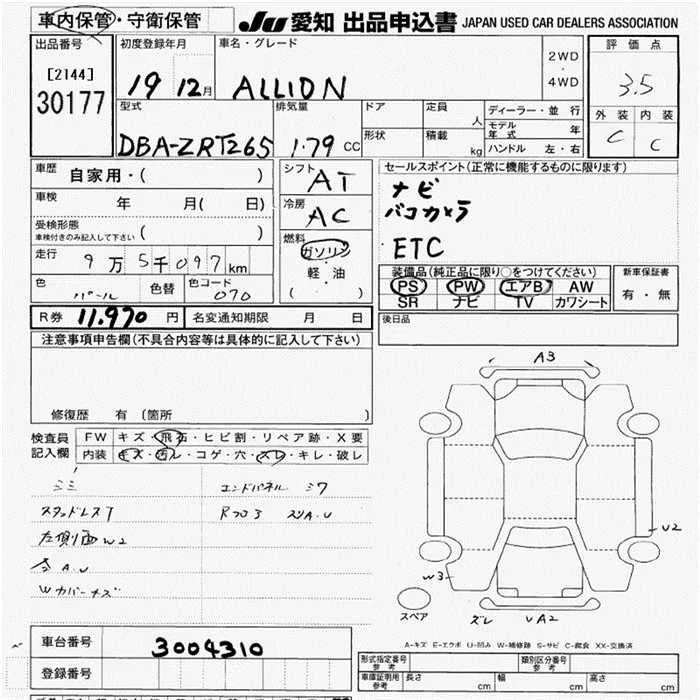 車内保管・守衛保管 JU 愛知 出品申込書 JAPAN USED CAR DEALERS ASSOCIATION
出品番号
[2144]
30177
初度登録年月
19 12月
車名・グレード
ALLION
2WD
・
4WD
評価点
3.5
外装 内装
C C
型式
DBA-ZRT265
排気量
1.79 CC
ドア
形状
定員
人
積載
kg
ディーラー・並行
モデル年式 年
ハンドル 左・右
車歴 自家用・( )
車検 年 月( 日)
受検形態
車検付きのみ記入して下さい ( )
走行 9万5千097km
色 パール 色替 色コード 070
シフト AT
冷房 AC
燃料
ガソリン
・
軽・油
( )
セールスポイント(正常に機能するものに限ります)
ナビ
バコカメラ
ETC
装備品(純正品に限り○をつけてください)
PS PW エアB AW
SR ナビ TV カワシート
新車保証書
有・無
R券 11,970 円 名変通知期限 月 日
後日品
注意事項申告欄(不具合内容等は具体的に記入して下さい)
修復歴 有 〔箇所 〕
検査員
記入欄
FW キズ・飛石・ヒビ割・リペア跡・X要
内装 キズ・汚レ・コゲ・穴・スレ・キレ・破レ
エンドパネル ミワ
スタッドレス
左側面 W2
A.U
A3
U2
W3
スペア
ズレ UA2
A-キズ E-エクボ U-凹み W-補修跡 S-サビ C-腐食 XX-交換済
車台番号 3004310
登録番号
形式指定番号
参考
類別区分番号
参考
車庫証明用
参考
長さ cm 幅 cm 高さ cm